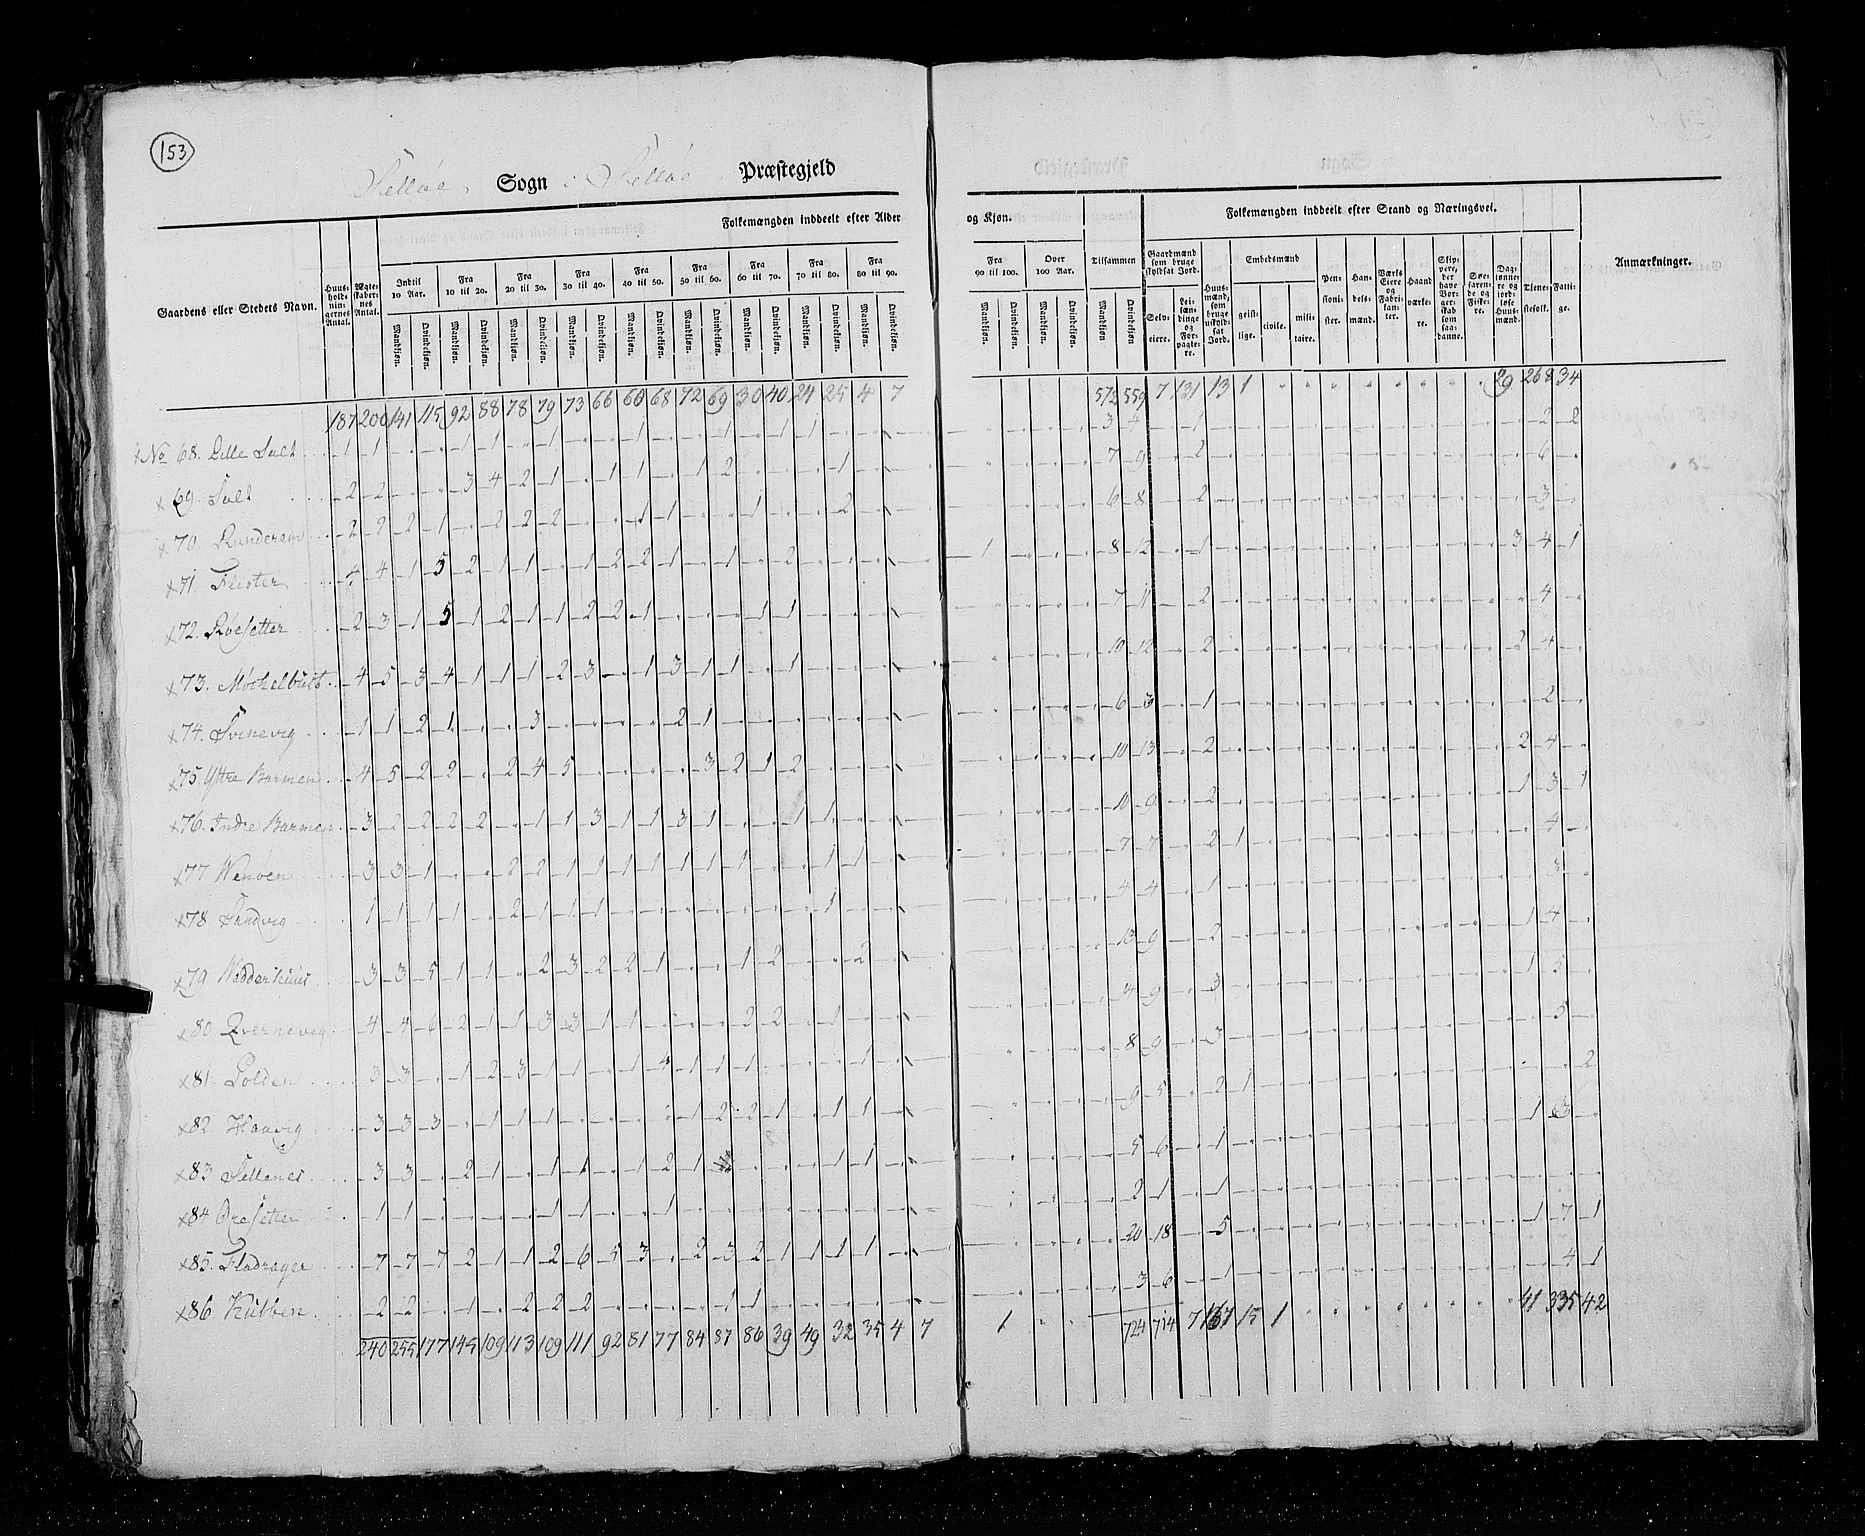 153
Selløe Sogn i Selløe Præstegjeld
Folkemængden inddeelt efter Alder og Kjøn.
Folkemængden inddeelt efter Stand og Næringsvei.
Gaardens eller Stedets Navn.
Huusholdningernes Antal.
Ægteskabernes Antal.
Indtil 10 Aar.
Fra 10 til 20.
Fra 20 til 30.
Fra 30 til 40.
Fra 40 til 50.
Fra 50 til 60.
Fra 60 til 70.
Fra 70 til 80.
Fra 80 til 90.
Fra 90 til 100.
Over 100 Aar.
Tilsammen
Mandkjøn. Qvindekjøn.
Gaardmænd som bruge skyldsat Jord.
Selveiere.
Leilændinge og Forpagtere.
Huusmænd, som bruge uskyldsat Jord.
Embedsmænd
geistlige.
civile.
militaire.
Pensionister.
Handelsmænd.
Værks Eiere og Fabrikanter.
Haandværkere.
Skippere, der have Borgerskab som saadanne.
Søefarende og Fiskere.
Daglønnere og jordløse Huusmænd.
Tjenestefolk.
Fattige.
Anmærkninger.
187 200 141 115 92 88 78 79 73 66 60 68 72 69 30 40 24 25 4 7 572 559 7 131 13 1 29 268 34
No 68. Lille Salt 1 1 3 4 1 2 2
69. Salt 2 2 3 4 2 1 1 1 1 2 1 7 9 2 6
70 Runderem 2 2 2 1 2 2 2 1 1 1 2 6 8 2 3
71. Flister 4 4 1 5 2 1 1 1 2 2 1 1 2 1 8 12 1 3 4 1
72. Roesetter 2 3 1 5 1 2 1 1 2 2 1 1 1 7 11 2 4
73. Mochelbust 4 5 3 4 1 1 1 2 3 1 3 1 1 1 10 12 2 2 4
74. Svinevig 1 1 2 1 3 2 1 6 3 1 2
75. Ystre Barmen 4 5 2 2 2 4 5 3 2 1 2 10 13 2 2 4
76. Indre Barmen 3 2 2 2 2 1 1 3 1 1 3 1 1 1 10 9 2 1 3 1
77 Wenøen 3 3 1 2 2 1 1 1 1 1 1 1 1 7 7 2 1 4
78 Sandvig 1 1 1 1 2 1 1 1 1 4 4 1 3
79 Wedderhuus 3 3 5 1 1 2 3 2 2 1 1 2 2 13 9 2 1 4
80 Qvernevig 4 4 6 2 1 1 3 3 1 1 2 2 1 14 9 3 1 5
81. Golden 3 3 1 2 3 1 1 1 4 1 1 1 1 8 9 3 5
82 Haavig 3 3 3 1 1 1 1 2 2 1 1 1 9 5 2 1 2
83 Sellenes 3 3 2 1 1 1 1 2 1 1 1 5 6 1 1 3
84 Øresetter 1 1 1 1 1 2 1 1
85. Fladrager 7 7 7 2 1 1 2 6 5 3 2 3 2 1 1 1 1 20 18 5 1 7 1
86 Kubben 2 2 1 2 2 2 1 1 3 6 1 4 1
240 255 177 145 109 113 109 111 92 81 77 84 87 86 39 49 32 35 4 7 1 724 714 7 167 15 1 41 335 42